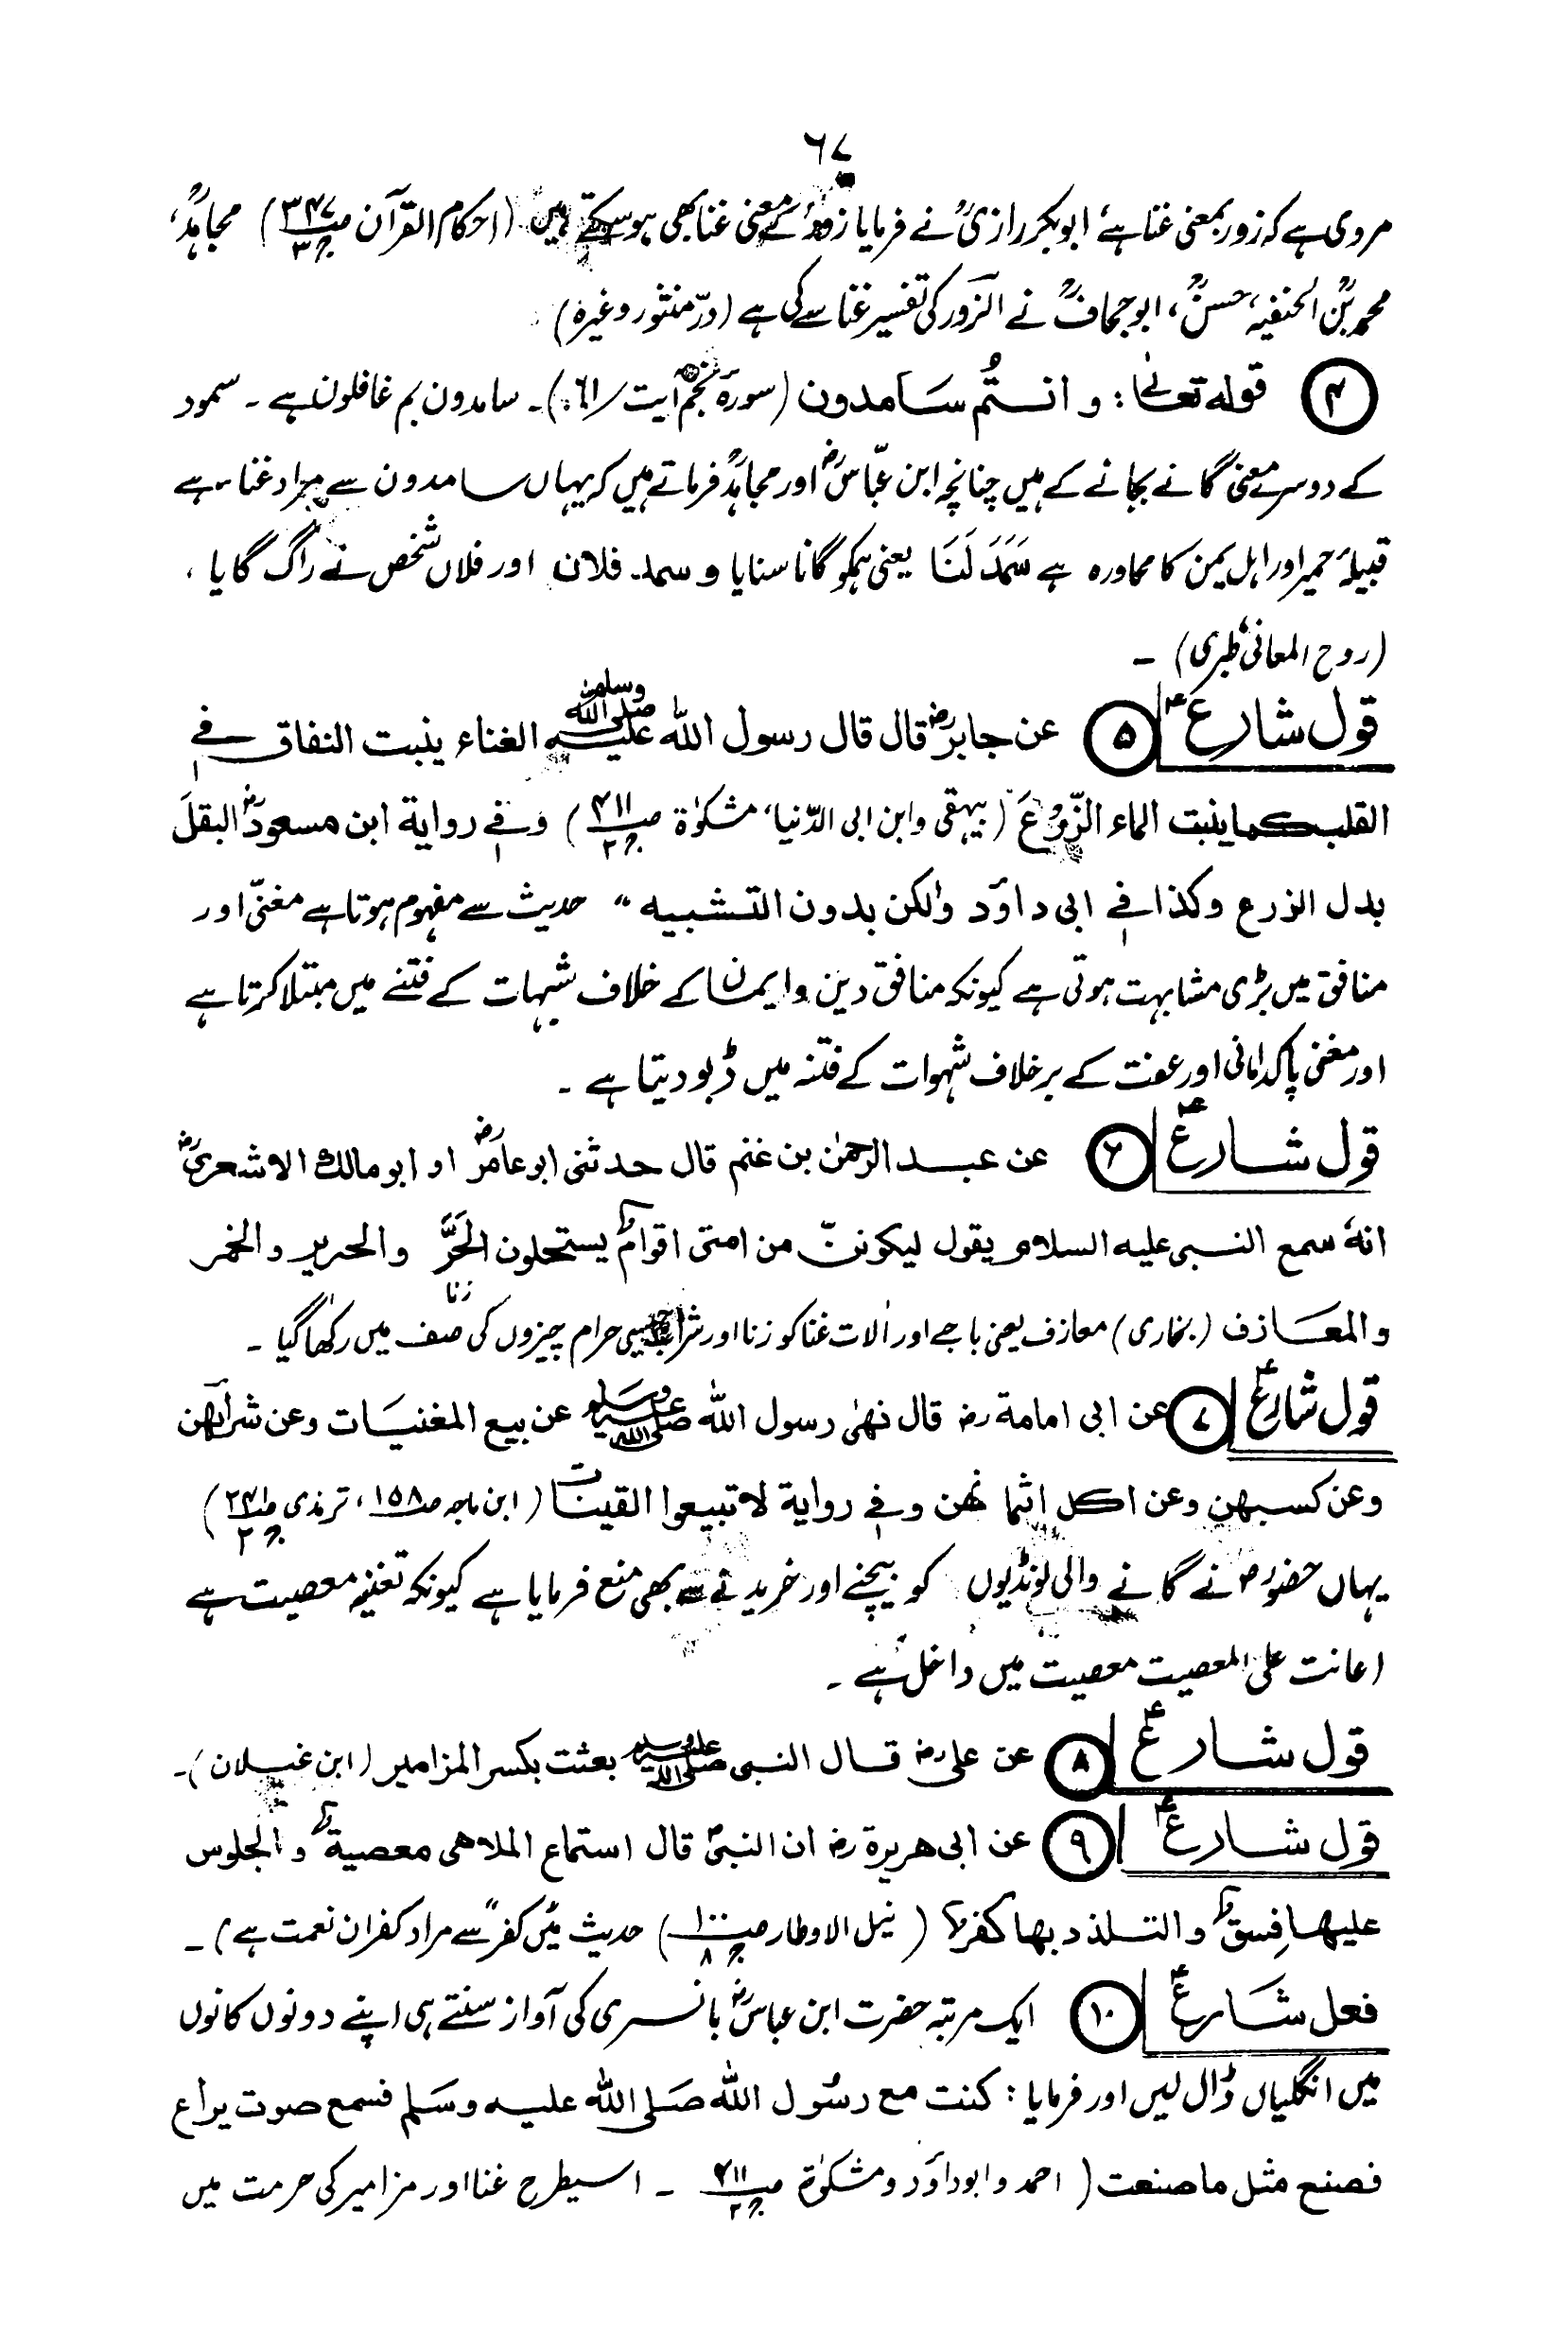 ۶۷
مروی ہے کہ زور بمعنی غنا ہے، ابوبکر رازیؒ نے فرمایا زور کے معنی غنا بھی ہوسکتے ہیں (احکام القرآن ص۳۴۷ ج۳) مجاہدؒ،
محمد بن الحنفیہؒ، حسنؒ، ابوجحافؒ نے الزور کی تفسیر غنا سے کی ہے (درّ منثور وغیرہ)
④ قولہ تعالیٰ: وانتُم سامدون (سورۃ نجم آیت ۶۱)۔ سامدون بم غافلون ہے ۔ سمود
کے دوسرے معنی گانے بجانے کے ہیں چنانچہ ابن عبّاسؓ اور مجاہدؒ فرماتے ہیں کہ یہاں سامدون سے مراد غنا ہے
قبیلۂ حمیر اور اہل یمن کا محاورہ ہے سَمَدَ لَنَا یعنی ہمکو گانا سنایا و سمد فلان اور فلاں شخص نے راگ گایا ،
(روح المعانی، طبری) ۔
قول شارعؑ ⑤ عن جابرؓ قال قال رسول اللہ صلی اللہ علیہ وسلم الغناء ینبت النفاق فی
القلب کما ینبت الماء الزّرْعَ (بیہقی وابن ابی الدّنیا، مشکوٰۃ ص۴۱۱ ج۲) وفی روایۃ ابن مسعودؓ البقلَ
بدل الزرع وکذا فی ابی داوٗد ولٰکن بدون التشبیہ “ حدیث سے مفہوم ہوتا ہے مغنّی اور
منافق میں بڑی مشابہت ہوتی ہے کیونکہ منافق دین وایمان کے خلاف شبہات کے فتنے میں مبتلا کرتا ہے
اور مغنی پاکدامانی اور عفت کے برخلاف شہوات کے فتنہ میں ڈبو دیتا ہے ۔
قول شارعؑ ⑥ عن عبد الرحمٰن بن غنم قال حدثنی ابو عامرؓ او ابو مالک الاشعریؓ
انہٗ سمع النبی علیہ السلام یقول لیکوننّ من امتی اقوامٌ یستحلون الحَرَّ والحریر والخمر
زنا
والمعازف (بخاری) معازف یعنی باجے اور اٰلات غنا کو زنا اور شراب جیسی حرام چیزوں کی صف میں رکھا گیا ۔
قول شارعؑ ⑦ عن ابی امامۃ رض قال نھیٰ رسول اللہ صلی اللہ علیہ وسلم عن بیع المغنیات وعن شرائھن
وعن کسبھن وعن اکل اثمانھن وفی روایۃ لا تبیعوا القینات (ابن ماجہ ص۱۵۸، ترمذی ص۲۴۱ ج۲)
یہاں حضورؐ نے گانے والی لونڈیوں کو بیچنے اور خریدنے سے بھی منع فرمایا ہے کیونکہ تغنیہ معصیت ہے
اعانت علی المعصیت معصیت میں داخل ہے ۔
قول شارعؑ ⑧ عن علی رض قال النبی صلی اللہ علیہ وسلم بعثت بکسر المزامیر (ابن غیلان)۔
قول شارعؑ ⑨ عن ابی ھریرۃ رض ان النبیؐ قال استماع الملاھی معصیۃٌ والجلوس
علیھا فِسقٌ والتلذذ بھا کفرٌ (نیل الاوطار ص۱۰۰ ج۸) حدیث میں کفر سے مراد کفران نعمت ہے)۔
فعل شارعؑ ⑩ ایک مرتبہ حضرت ابن عباسؓ بانسری کی آواز سنتے ہی اپنے دونوں کانوں
میں انگلیاں ڈال لیں اور فرمایا : کنت مع رسُول اللہ صَلی اللہ علیہ وسَلم فسمع صوت یراع
فصنع مثل ما صنعت (احمد وابوداوٗد ومشکوٰۃ ص۴۱۱ ج۲ ۔ اسیطرح غنا اور مزامیر کی حرمت میں